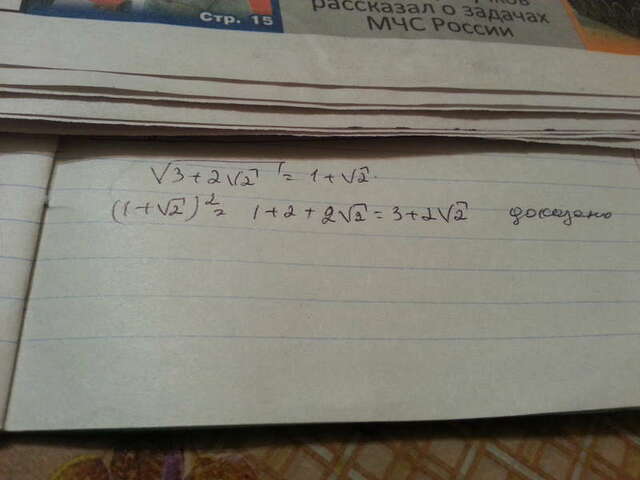 рассказал о задачах
МЧС России
Стр. 15
√3+2√2 = 1+√2.
(1+√2)² = 1+2+2√2 = 3+2√2 доказано